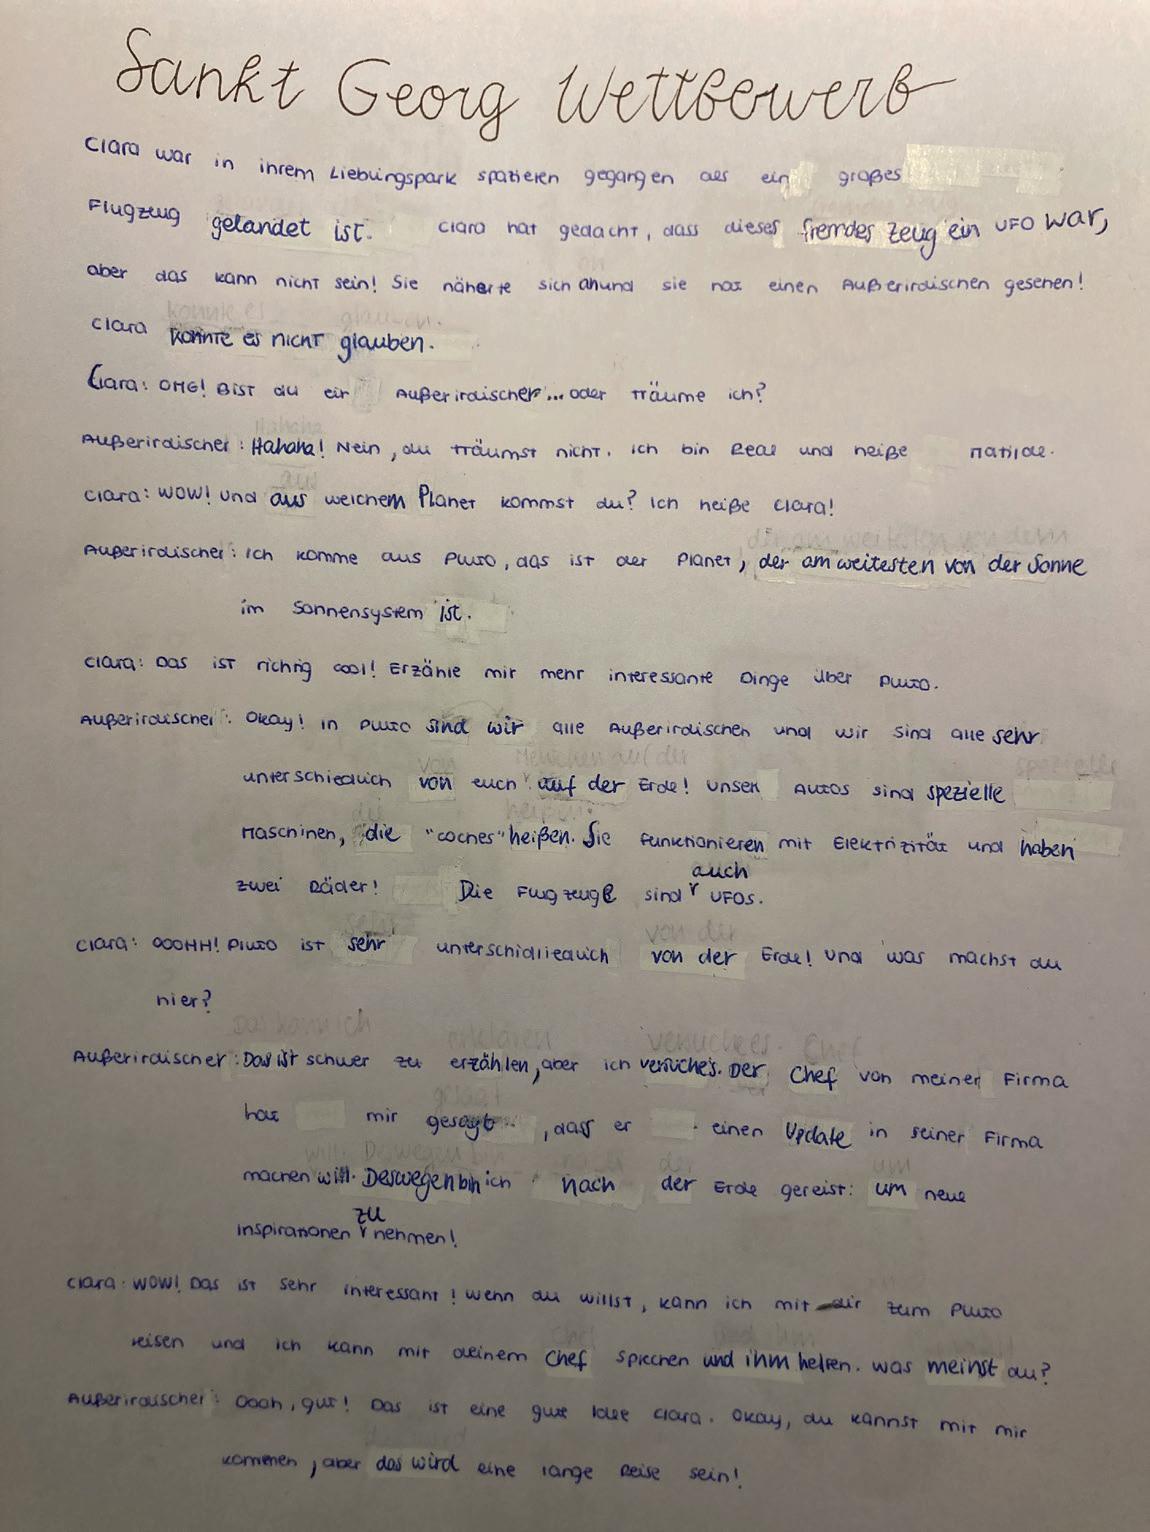 Sankt Georg Wettbewerb
Clara war in ihrem Lieblingspark spazieren gegangen als ein großes
Flugzeug gelandet ist. Clara hat gedacht, dass dieses fremdes Zeug ein UFO war,
aber das kann nicht sein! Sie näherte sich an und sie hat einen Außerirdischen gesehen!
Clara konnte es nicht glauben.
Clara: OMG! Bist du ein Außerirdischer... oder träume ich?
Außerirdischer: Hahaha! Nein, du träumst nicht. Ich bin Real und heiße Matilde.
Clara: WOW! Und aus welchem Planet kommst du? Ich heiße Clara!
Außerirdischer: Ich komme aus Pluto, das ist der Planet, der am weitesten von der Sonne
im Sonnensystem ist.
Clara: Das ist richtig cool! Erzähle mir mehr interessante Dinge über Pluto.
Außerirdischer: Okay! In Pluto sind wir alle Außerirdischen und wir sind alle sehr
unterschiedlich von euch auf der Erde! Unsere Autos sind spezielle
Maschinen, die "coches" heißen. Sie funktionieren mit Elektrizität und haben
zwei Räder! Die Flugzeuge sind auch UFOs.
Clara: OOOHH! Pluto ist sehr unterschidlieduich von der Erde! Und was machst du
hier?
Außerirdischer: Das ist schwer zu erzählen, aber ich versuche's. Der Chef von meiner Firma
hat mir gesagt, dass er einen Update in seiner Firma
machen will. Deswegen bin ich nach der Erde gereist: um neue
inspirationen zu nehmen!
Clara: WOW! Das ist sehr interessant! Wenn du willst, kann ich mit dir zum Pluto
reisen und ich kann mit deinem Chef sprechen und ihm helfen. Was meinst du?
Außerirdischer: Oooh, gut! Das ist eine gute Idee Clara. Okay, du kannst mit mir
kommen, aber das wird eine lange Reise sein!